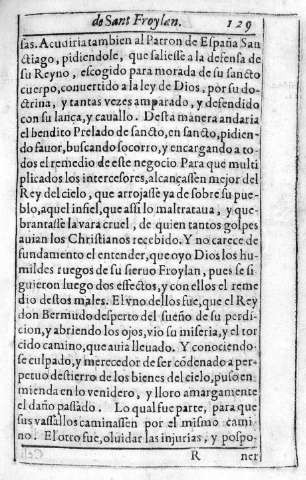 de Sant Froylan. 129
sas. Acudiria tambien al Patron de España San
ctiago, pidiendole, que saliesse a la defensa de
su Reyno, escogido para morada de su sancto
cuerpo, conuertido a la ley de Dios, por su do-
ctrina, y tantas vezes amparado, y defendido
con su lança, y cauallo. Desta manera andaria
el bendito Prelado de sancto, en sancto, pidien-
do fauor, buscando socorro, y encargando a to-
dos el remedio de este negocio Para que multi
plicados los intercesores, alcançassen mejor del
Rey del cielo, que arrojasse ya de sobre su pue-
blo, aquel infiel, que assi lo maltrataua, y que-
brantasse la vara cruel, de quien tantos golpes
auian los Christianos recebido. Y no carece de
fundamento el entender, que oyo Dios los hu-
mildes ruegos de su sieruo Froylan, pues se si-
guieron luego dos effectos, y con ellos el reme
dio destos males. El vno dellos fue, que el Rey
don Bermudo desperto del sueño de su perdi-
cion, y abriendo los ojos, vio su miseria, y el tor
cido camino, que auia lleuado. Y conociendo-
se culpado, y merecedor de ser cõdenado a per-
petuo destierro de los bienes del cielo, puso en-
mienda en lo venidero, y lloro amargamente
el daño passado. Lo qual fue parte, para que
sus vassallos caminassen por el mismo cami
no. El otro fue, oluidar las injurias, y pospo-
R ner